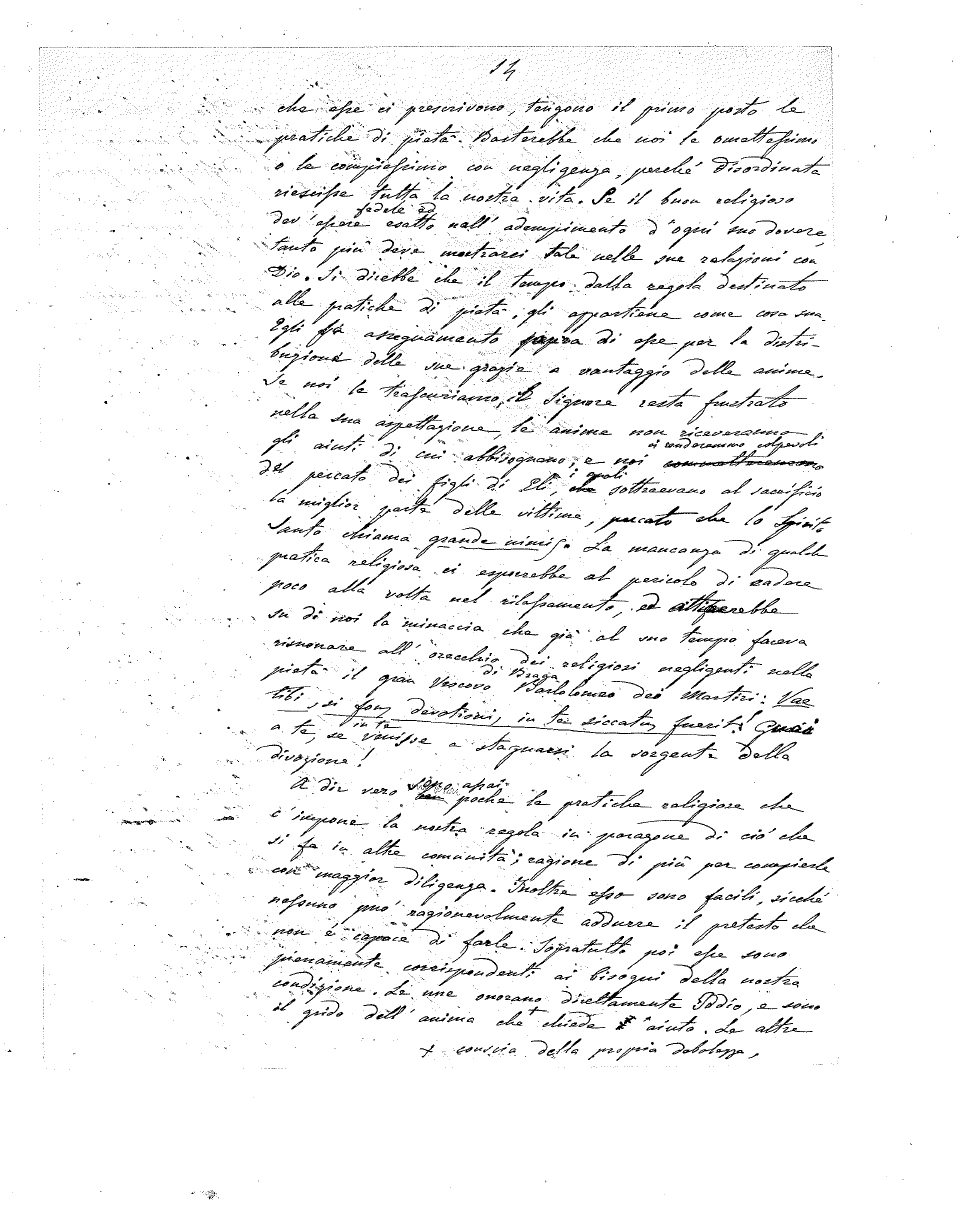 14
che esse ci prescrivono, tengono il primo posto le
pratiche di pietà. Basterebbe che noi le omettessimo
o le compiessimo con negligenza, perché disordinata
riescisse tutta la nostra vita. Se il buon religioso
fedele ed
dev'essere esatto nell'adempimento d'ogni suo dovere,
tanto più deve mostrarsi tale nelle sue relazioni con
Dio. Si direbbe che il tempo dalla regola destinato
alle pratiche di pietà, gli appartiene come cosa sua.
Egli fa assegnamento sopra di esse per la distri-
buzione delle sue grazie a vantaggio delle anime.
Se noi le trascuriamo, il Signore resta frustrato
nella sua aspettazione, le anime non riceveranno
ci renderemmo colpevoli
gli aiuti di cui abbisognano; e noi commetteremmo
i quali
del peccato dei figli di Eli, che sottraevano al sacrificio
la miglior parte delle vittime, peccato che lo Spirito
Santo chiama grande nimis. La mancanza di qualche
pratica religiosa ci esporrebbe al pericolo di cadere
poco alla volta nel rilassamento, ed attirerebbe
su di noi la minaccia che già al suo tempo faceva
risuonare all'orecchio dei religiosi negligenti nella
di Braga
pietà il gran Vescovo Bartolomeo dei Martiri: Vae
tibi, si fons devotionis in te siccatus fuerit! Guai
in te
a te, se venisse a stagnarsi la sorgente della
divozione!
sono assai
A dir vero poche le pratiche religiose che
c'impone la nostra regola in paragone di ciò che
si fa in altre comunità; ragione di più per compierle
con maggior diligenza. Inoltre esse sono facili, sicché
nessuno può ragionevolmente addurre il pretesto che
non è capace di farle. Sopratutto poi esse sono
pienamente corrispondenti ai bisogni della nostra
condizione. Le une onorano direttamente Iddio, e sono
il grido dell'anima che + chiede aiuto. Le altre
+ conscia della propria debolezza,